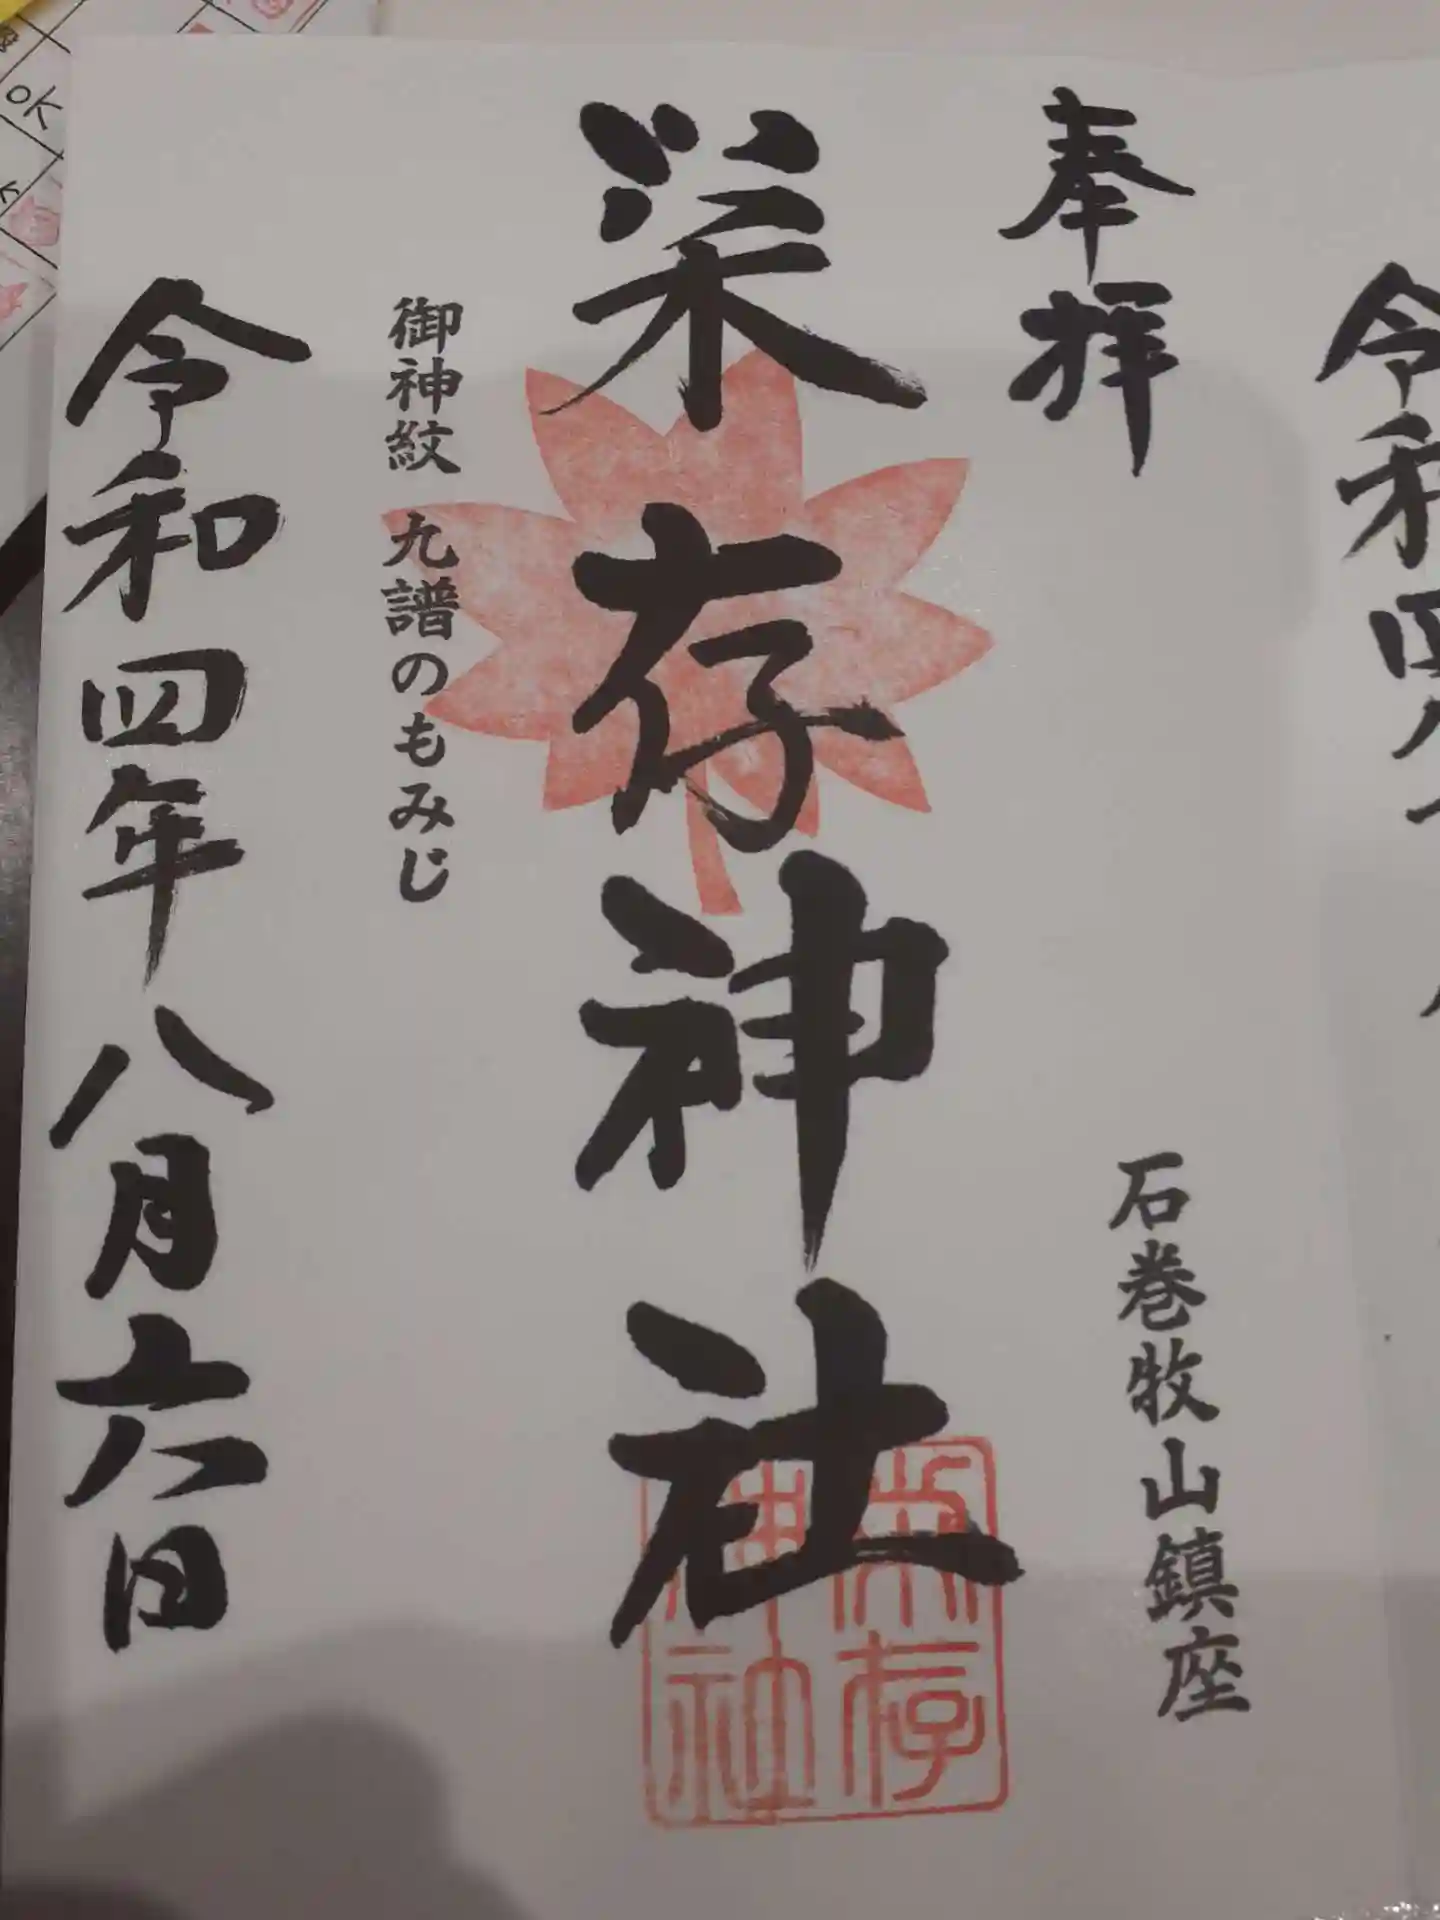 奉拝
石巻牧山鎮座
栄存神社
栄存
神社
御神紋 九譜のもみじ
令和四年八月六日
令和四
OK